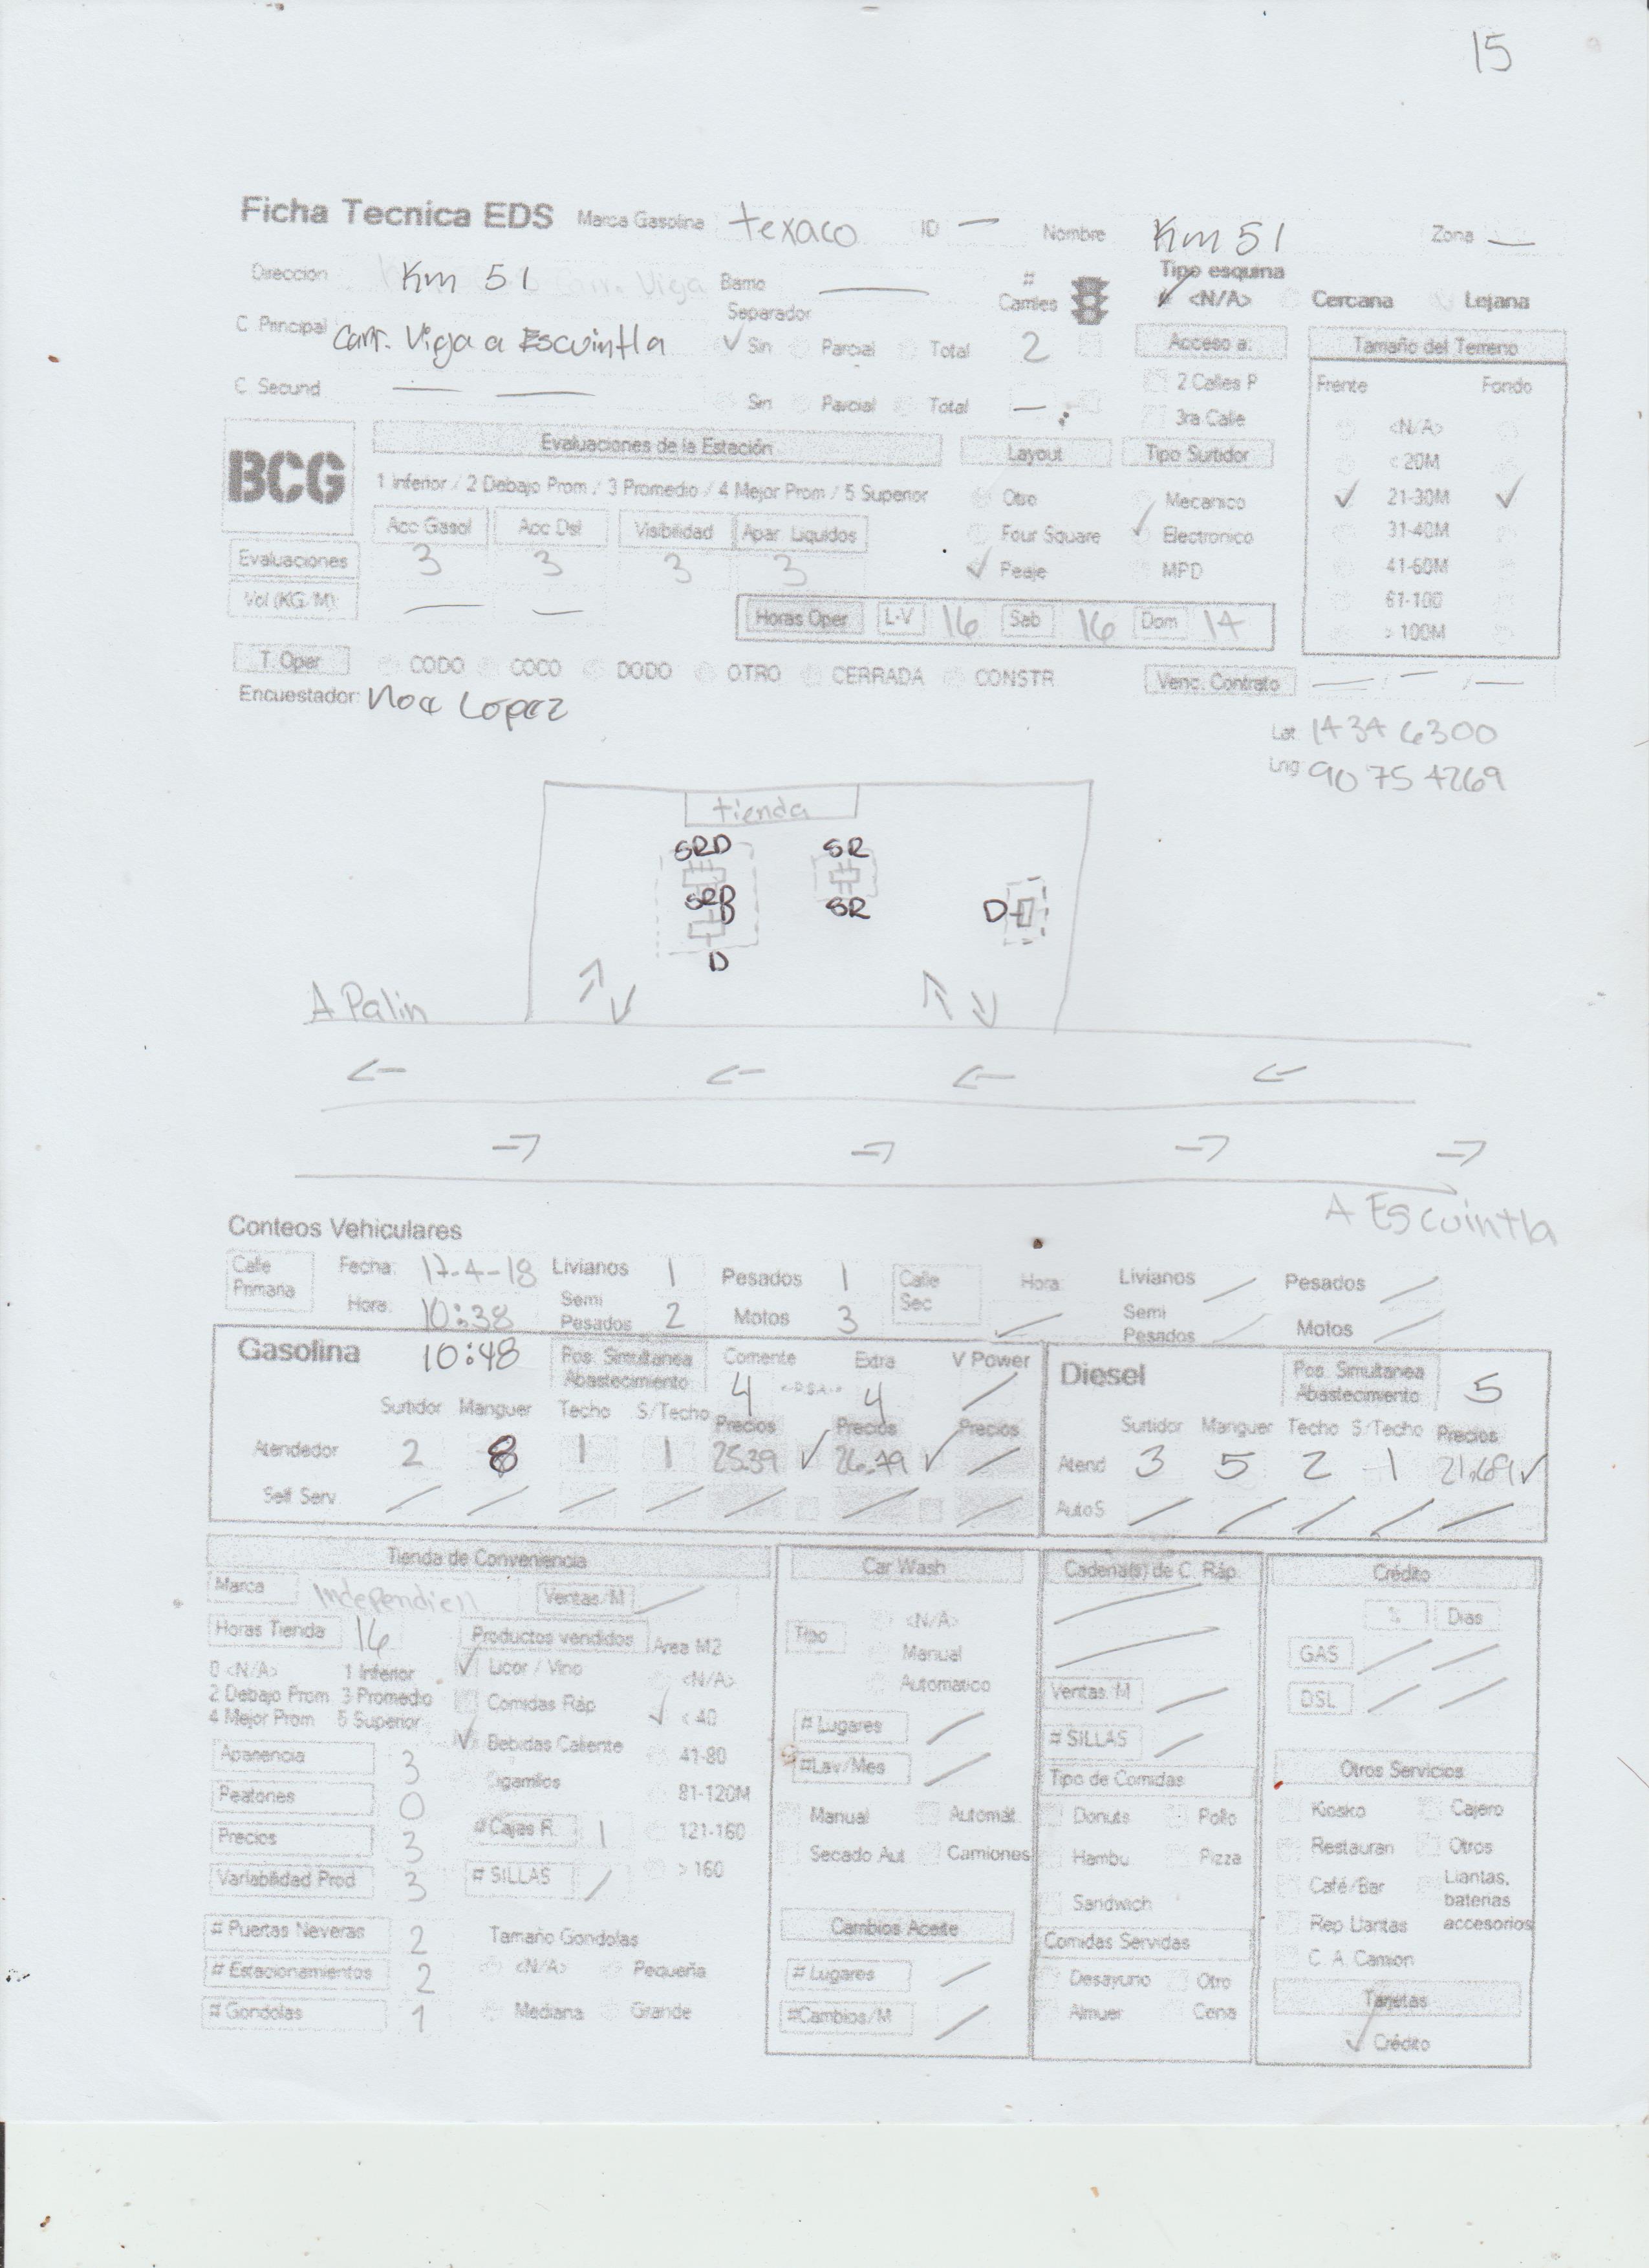 15
Ficha Tecnica EDS Marca Gasolina Texaco ID — Nombre Km 51 Zona —
Dirección Km 51 Barrio — # Carriles Tipo esquina
<N/A> Cercana Lejana
Separador
C Principal Carr. Vieja a Escuintla Sin Parcial Total 2 Acceso a: Tamaño del Terreno
2 Calles P Frente Fondo
C Secund — — Sin Parcial Total — 3ra Calle <N/A>
BCG Evaluaciones de la Estación Layout Tipo Surtidor < 20M
1 Inferior / 2 Debajo Prom / 3 Promedio / 4 Mejor Prom / 5 Superior Otro Mecanico ✓ 21-30M ✓
Acc Gasol Acc Dsl Visibilidad Apar Liquidos Four Square ✓ Electronico 31-40M
Evaluaciones 3 3 3 3 ✓ Peaje MPD 41-60M
Vol (KG/M) — — Horas Oper L-V 16 Sab 16 Dom 14 61-100
> 100M
T. Oper CODO COCO DODO OTRO CERRADA CONSTR Venc. Contrato — / — / —
Encuestador: Noe Lopez
Lat: 14 34 6300
Lng: 90 75 4269
tienda
SRD SR
SRD SR D
D
D
A Palin
A Escuintla
Conteos Vehiculares
Calle Primaria Fecha: 17-4-18 Livianos 1 Pesados 1 Calle Sec Hora Livianos / Pesados /
Hora: 10:38 Semi Pesados 2 Motos 3 Semi Pesados / Motos /
Gasolina 10:48 Pos. Simultanea Abastecimiento Corriente 4 Extra 4 V Power / Diesel Pos. Simultanea Abastecimiento 5
Surtidor Manguer Techo S/Techo Precios Precios Precios Surtidor Manguer Techo S/Techo Precios
Atendedor 2 8 1 1 25.39 ✓ 26.79 ✓ / Atend 3 5 2 1 21.69 ✓
Self Serv / / / / / / / AutoS / / / / /
Tienda de Conveniencia Car Wash Cadena(s) de C. Ráp. Crédito
Marca Independien Ventas/M / <N/A> % Dias
Horas Tienda 16 Productos vendidos Area M2 Tipo Manual GAS / /
0 <N/A> 1 Inferior ✓ Licor / Vino <N/A> Automatico DSL / /
2 Debajo Prom 3 Promedio Comidas Ráp ✓ < 40 # Lugares / Ventas/M /
4 Mejor Prom 5 Superior ✓ Bebidas Caliente 41-80 #Lav/Mes / # SILLAS /
Apariencia 3 Cigarrillos 81-120M Tipo de Comidas Otros Servicios
Peatones 0 # Cajas R. 1 121-160 Manual Automát. Donuts Pollo Kiosko Cajero
Precios 3 # SILLAS / > 160 Secado Aut Camiones Hambu Pizza Restauran Otros
Variabilidad Prod 3 Sandwich Café/Bar Llantas, baterias accesorios
# Puertas Neveras 2 Tamaño Gondolas Cambios Aceite Comidas Servidas Rep Llantas
# Estacionamientos 2 <N/A> Pequeña # Lugares / Desayuno Otro C. A. Camion
# Gondolas 1 Mediana Grande #Cambios/M / Almuer Cena Tarjetas
✓ Crédito